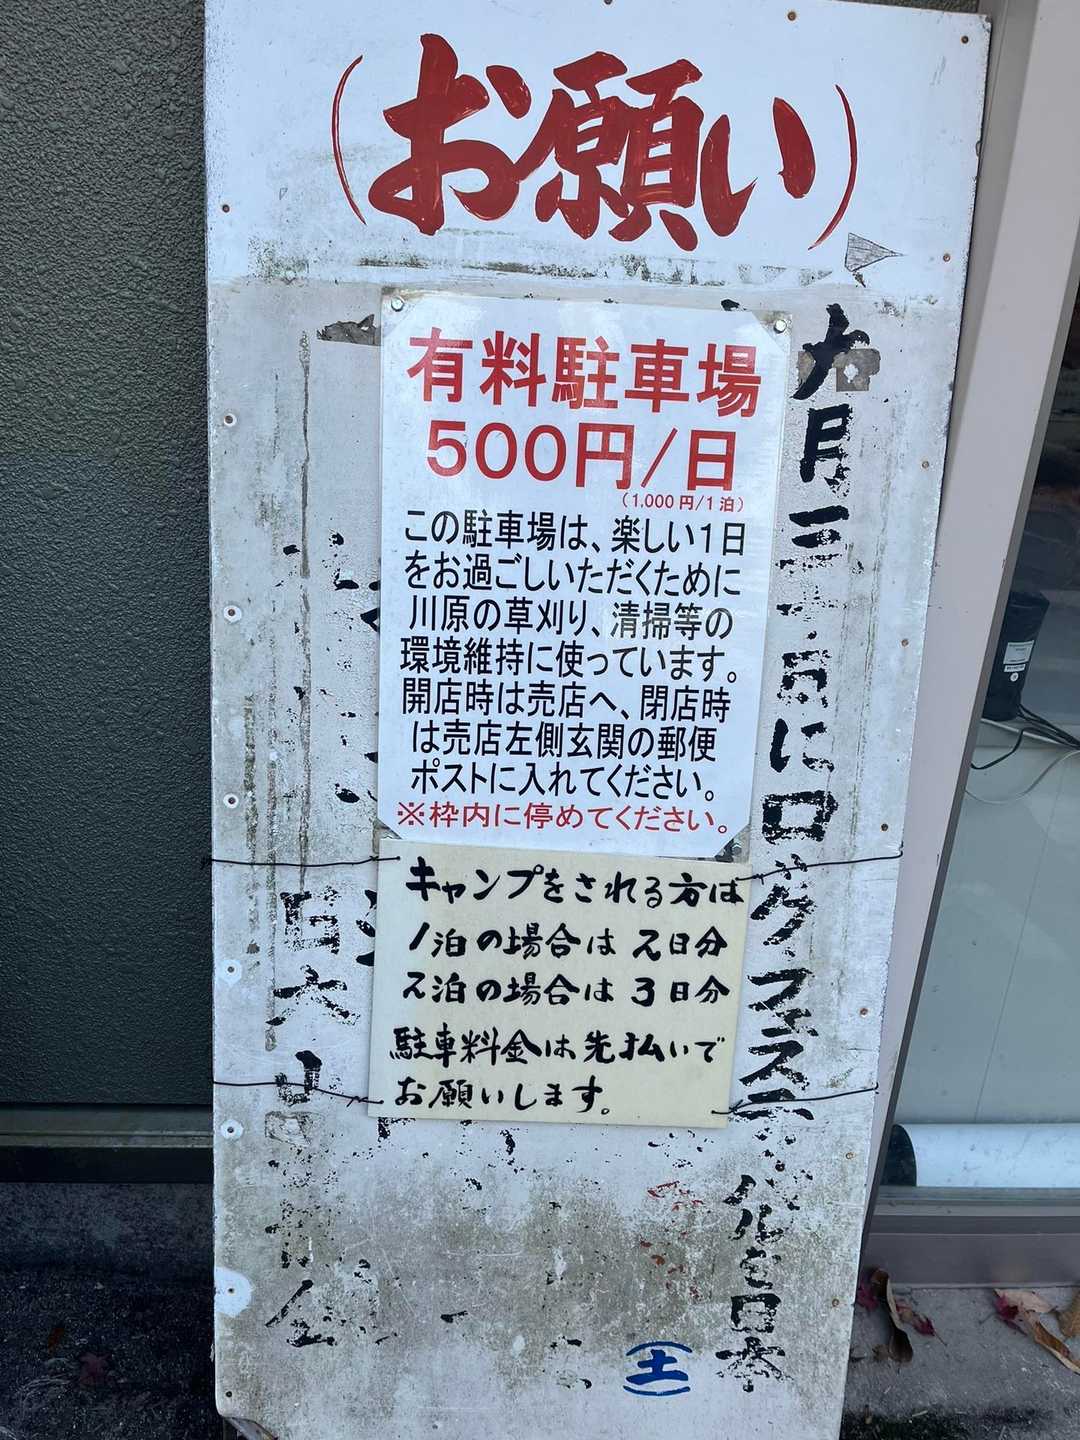 （お願い）
有料駐車場
500円/日
（1,000円/1泊）
この駐車場は、楽しい1日
をお過ごしいただくために
川原の草刈り、清掃等の
環境維持に使っています。
開店時は売店へ、閉店時
は売店左側玄関の郵便
ポストに入れてください。
※枠内に停めてください。
キャンプをされる方は
1泊の場合は2日分
2泊の場合は3日分
駐車料金は先払いで
お願いします。
九月三十日にロックフェスティバル
日本
土